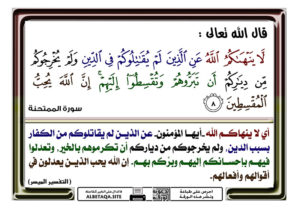 قال الله تعالى :
لَّا يَنْهَىٰكُمُ اللَّهُ عَنِ الَّذِينَ لَمْ يُقَٰتِلُوكُمْ فِي الدِّينِ وَلَمْ يُخْرِجُوكُم
مِّن دِيَٰرِكُمْ أَن تَبَرُّوهُمْ وَتُقْسِطُوٓا۟ إِلَيْهِمْ ۚ إِنَّ اللَّهَ يُحِبُّ
الْمُقْسِطِينَ ٨
سورة الممتحنة
أي لا ينهاكم الله -أيها المؤمنون- عن الذين لم يقاتلوكم من الكفار
بسبب الدين, ولم يخرجوكم من دياركم أن تكرموهم بالخير, وتعدلوا
فيهم بإحسانكم إليهم وبركم بهم. إن الله يحب الذين يعدلون في
أقوالهم وأفعالهم.
(التفسير الميسر)
احرص على طباعة
ونشر هذه الورقة
ALBETAQA.SITE